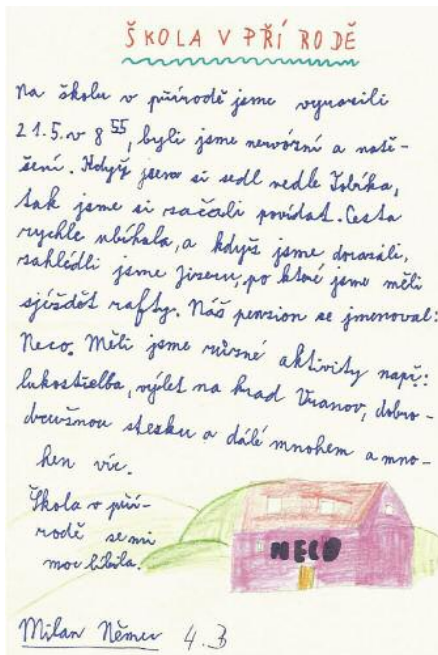 ŠKOLA V PŘÍRODĚ
Na školu v přírodě jsme vyrazili
21.5. v 8 55, byli jsme nervózní a natě-
šení. Když jsem si sedl vedle Tobíka,
tak jsme si začali povídat. Cesta
rychle ubíhala, a když jsme dorazili,
zahlédli jsme Jizeru, po které jsme měli
sjíždět rafty. Náš penzion se jmenoval:
Neco. Měli jsme různé aktivity např:
lukostřelba, výlet na hrad Vranov, dobro-
družnou stezku a dálé mnohem a mno-
hem víc.
Škola v pří-
rodě se mi
moc líbila.
NECO
Milan Němec 4.B